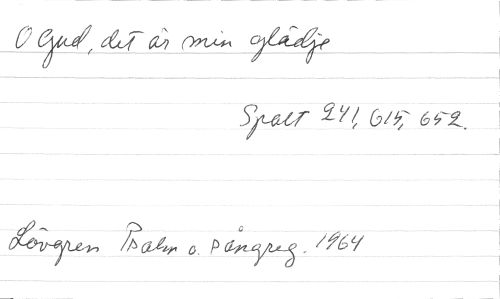 O Gud, det är min glädje
Spalt 241, 615, 652.
Lövgren Psalm o. sångreg. 1964